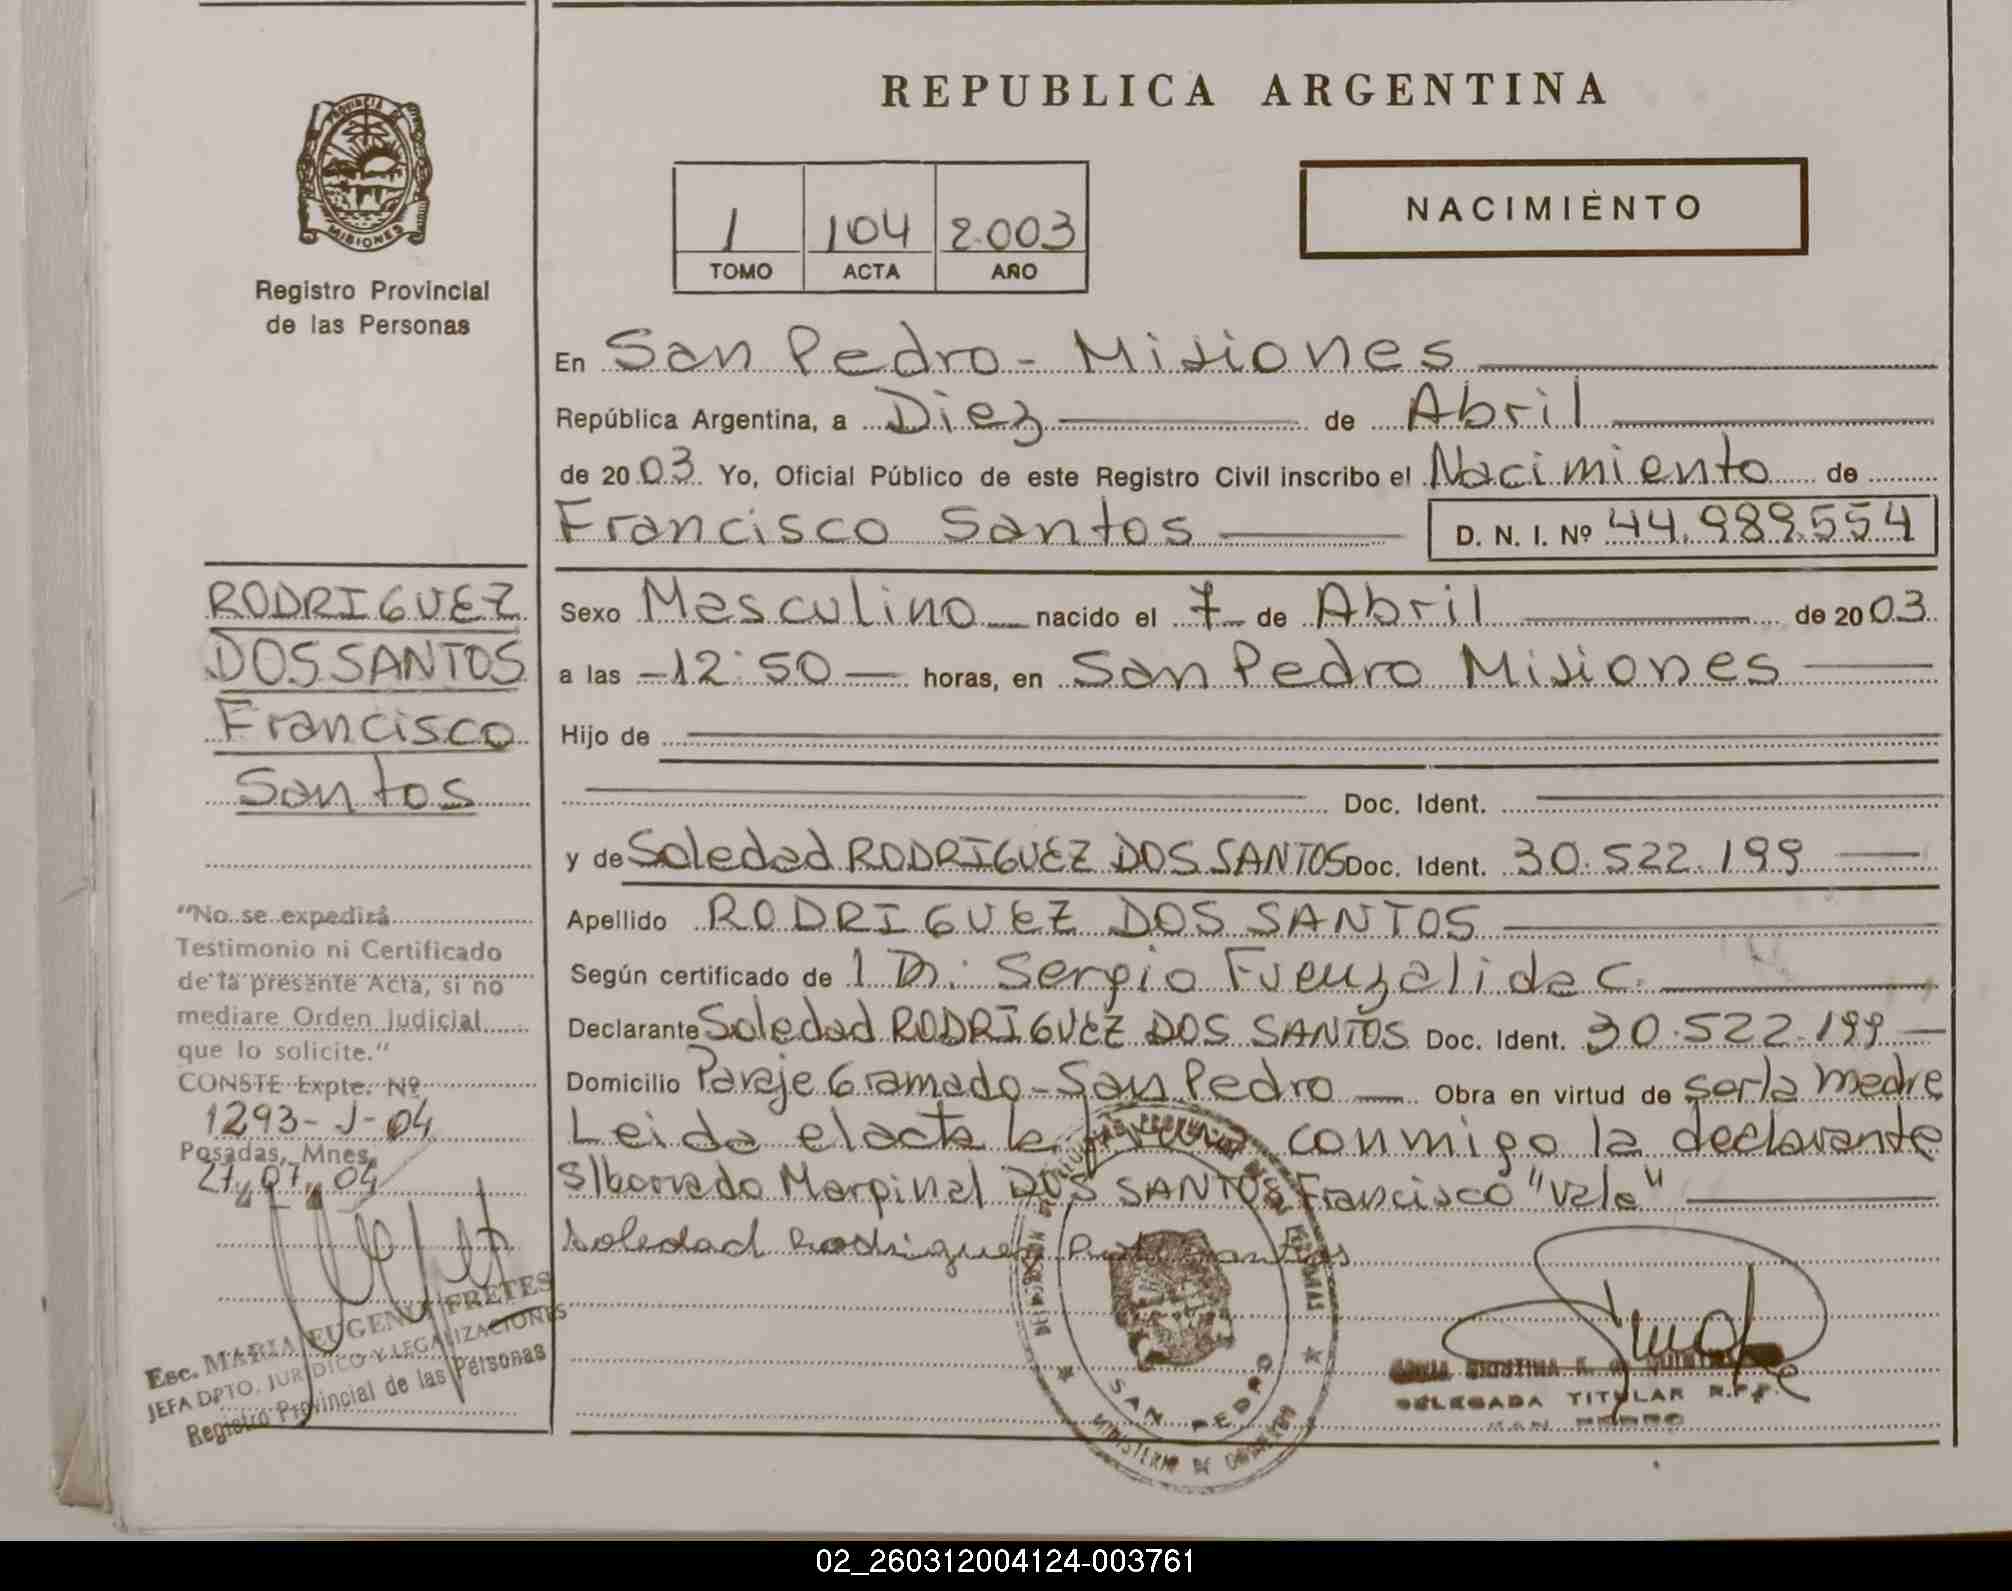 PROVINCIA DE
MISIONES
Registro Provincial
de las Personas
REPUBLICA ARGENTINA
1 104 2.003
TOMO ACTA AÑO
NACIMIENTO
En San Pedro - Misiones
República Argentina, a Diez de Abril
de 2003. Yo, Oficial Público de este Registro Civil inscribo el Nacimiento de
Francisco Santos D. N. I. Nº 44.989.554
RODRIGUEZ
DOS SANTOS
Francisco
Santos
Sexo Masculino nacido el 7 de Abril de 2003.
a las -12:50- horas, en San Pedro Misiones
Hijo de
Doc. Ident.
y de Soledad RODRIGUEZ DOS SANTOS Doc. Ident. 30.522.199
Apellido RODRIGUEZ DOS SANTOS
Según certificado de 1 Dr: Sergio Fuenzalida C.
Declarante Soledad RODRIGUEZ DOS SANTOS Doc. Ident. 30.522.199
Domicilio Paraje Gramado - San Pedro Obra en virtud de ser la madre
Leida el acta la firma conmigo la declarante
S/borrado Marginal DOS SANTOS Francisco "Vale"
Soledad Rodriguez Dos Santos
"No se expedirá
Testimonio ni Certificado
de la presente Acta, si no
mediare Orden Judicial
que lo solicite."
CONSTE Expte. Nº
1293-J-04
Posadas, Mnes,
27, 07, 04
Esc. MARIA EUGENIA FRETES
JEFA DPTO. JURIDICO Y LEGALIZACIONES
Registro Provincial de las Personas
SAN PEDRO
MINISTERIO DE GOBIERNO
DELEGADA TITULAR R.P.P.
SAN PEDRO
02_260312004124-003761